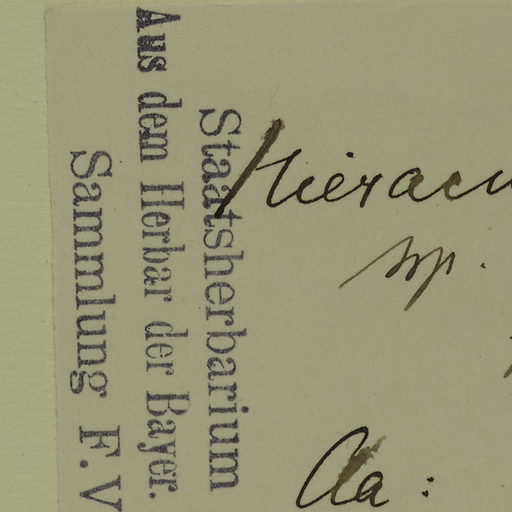 Staatsherbarium
Aus dem Herbar der Bayer.
Sammlung F. V
Hieraciu
sp.
Aa: